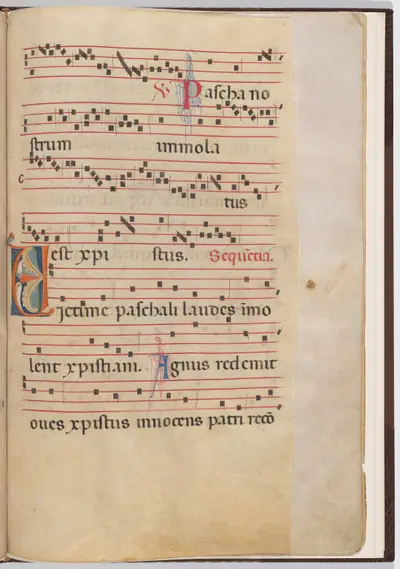 ℣ Pascha no
strum immola
tus
est xpi stus. Sequētia.
Victime paschali laudes īmo
lent xpistiani. Agnus redemit
oves xpistus innocens patri recō